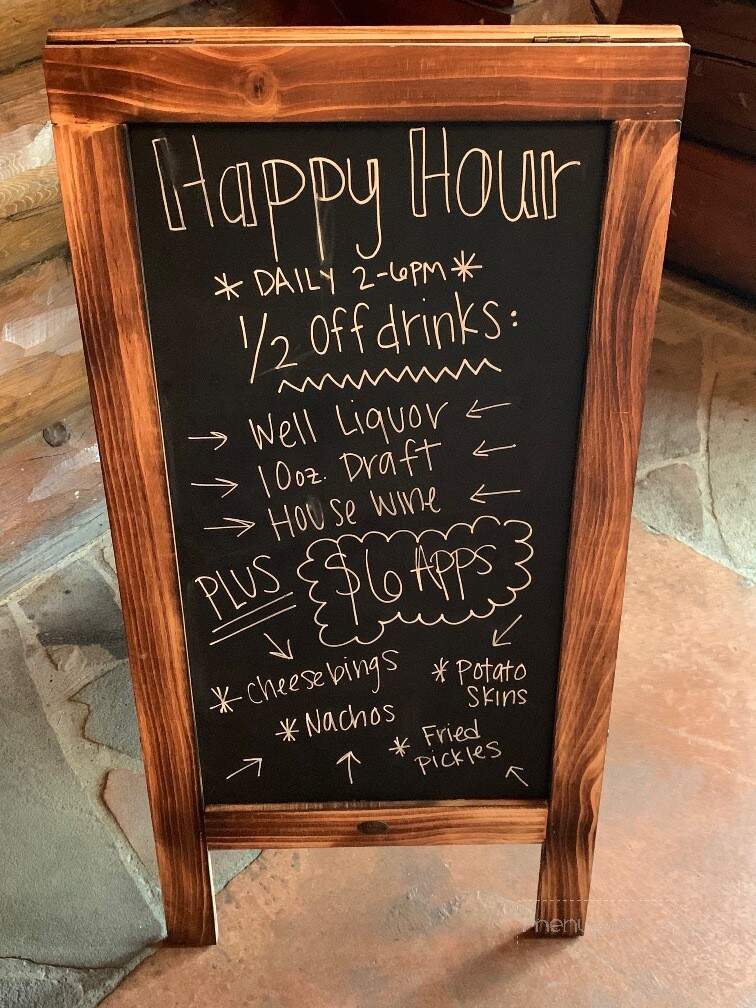 Happy Hour
* DAILY 2-6PM *
1/2 Off drinks:
→ Well Liquor ←
→ 10oz. Draft ←
→ House Wine ←
PLUS $6 APPS
* Cheesebings
* Potato Skins
* Nachos
* Fried Pickles
menu